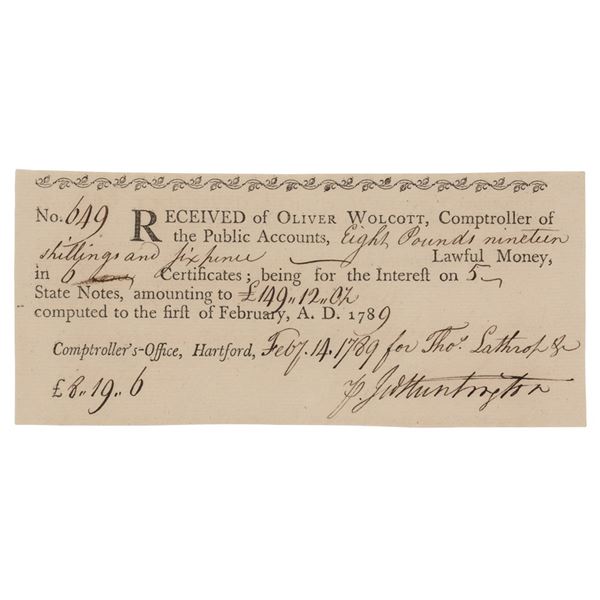 No. 649 RECEIVED of OLIVER WOLCOTT, Comptroller of
the Public Accounts, Eight Pounds nineteen
shillings and sixpence Lawful Money,
in 6 Certificates; being for the Intereſt on 5
State Notes, amounting to £149,,12,,0½
computed to the firſt of February, A. D. 1789
Comptroller's-Office, Hartford, Feby. 14. 1789 for Thos. Lathrop &c
£ 8,, 19,, 6
Huntington